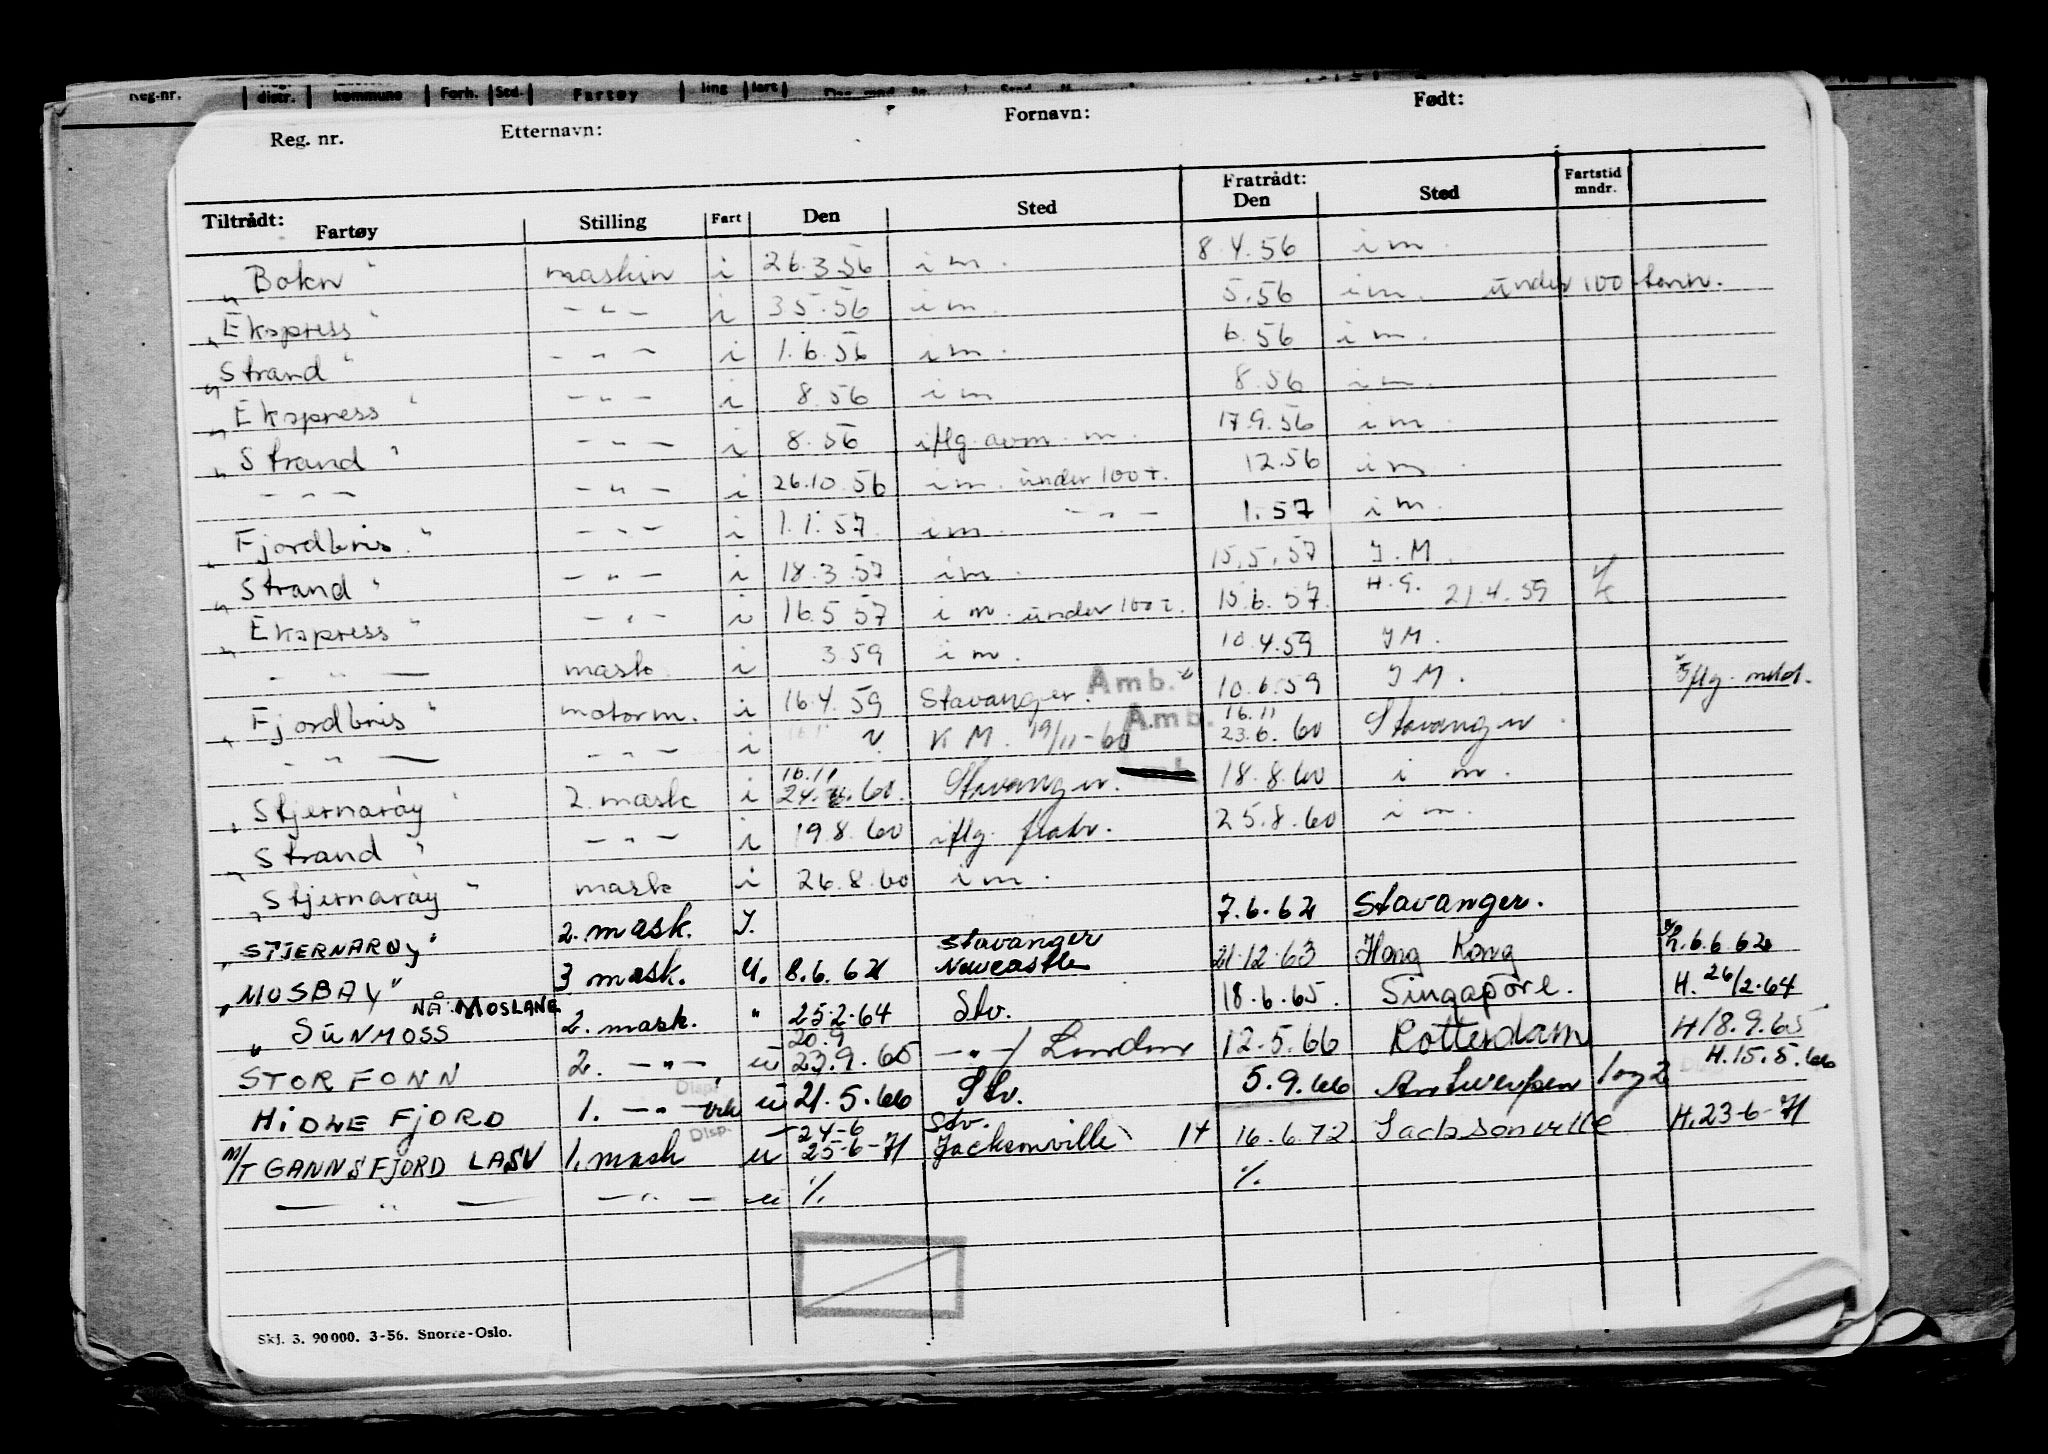 Reg. nr. Etternavn: Fornavn: Født:
Tiltrådt: Fratrådt:
Fartøy Stilling Fart Den Sted Den Sted Fartstid mndr.
"Bokn" maskin i 26.3.56 i m. 8.4.56 i m.
"Ekspress" - " - i 3 5.56 i m. 5.56 i m. under 100 tonn.
"Strand" - " - i 1.6.56 i m. 6.56 i m.
"Ekspress" - " - i 8.56 i m 8.56 i m.
"Strand" - " - i 8.56 iflg. avm. m. 17.9.56 i m.
- " - - " - i 26.10.56 i m. under 100 t. 12.56 i m.
"Fjordbris" - " - i 1.1.57 i m. - " - 1.57 i m.
"Strand" - " - i 18.3.57 i m. 15.5.57 J.M.
"Ekspress" - " - i 16.5 57 i m. under 100 t. 15.6.57. H.G. 21.4.59
- " - mask. i 3.59 i m. 10.4.59 J M.
"Fjordbris" motorm. i 16.4.59 Stavanger. Amb. 10.6.59 J M. iflg. meld.
- " - - " - i K M. 19/11-60 Amb. 16.11 23.6.60 Stavanger.
"Stjernarøy" 2. mask i 16.11 24.6.60. Stavanger. 18.8.60 i m.
"Strand" - " - i 19.8.60 iflg. fratr. 25.8.60 i m.
"Stjernarøy" mask i 26.8.60 i m.
"STJERNARØY" 2. mask. J. 7.6.62 Stavanger.
"MOSBAY" 3 mask. U. 8.6.62 Stavanger Newcastle 21.12.63 Hong Kong 6.6.62
"SUNMOSS NÅ. MOSLANE 2. mask. " 25.2.64 Stv. 18.6.65. Singapore. H. 26/2-64
STORFONN 2. - " - u 20.9 23.9.65 - " - / London 12.5.66 Rotterdam H 18.9.65
HIDLEFJORD 1. - " - Disp. u 21.5.66 Stv. 5.9.66 Antwerpen 1 og 2 H.15.5.66
M/T GANNSFJORD LASV 1. mask Disp. u 24-6 25-6-71 Stv. Jacksonville 16.6.72 Jacksonville H.23-6-71
- " - - " - u %. %.
Skj. 3. 90 000. 3-56. Snorre-Oslo.